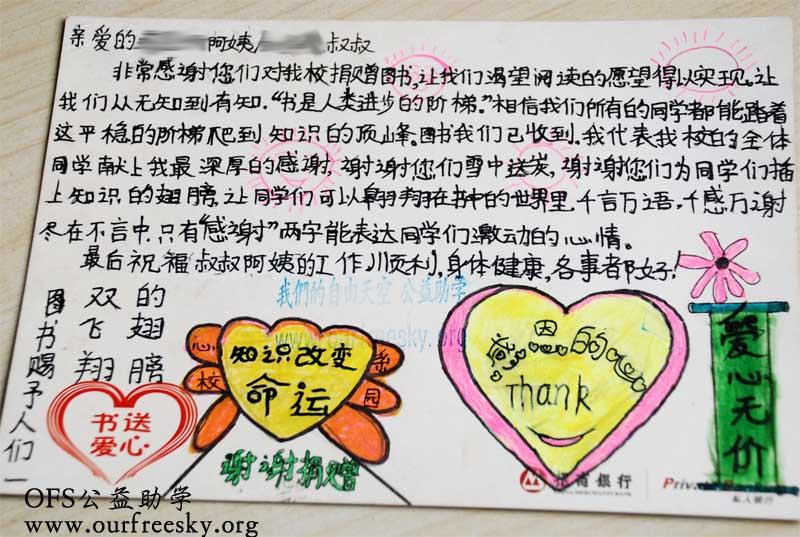 亲爱的 阿姨 叔叔
非常感谢您们对我校捐赠图书,让我们渴望阅读的愿望得以实现。让
我们从无知到有知.“书是人类进步的阶梯。”相信我们所有的同学都能踏着
这平稳的阶梯爬到知识的顶峰。图书我们已收到.我代表我校的全体
同学献上我最深厚的感谢,谢谢您们雪中送炭,谢谢您们为同学们插
上知识的翅膀,让同学们可以翱翔在书中的世界里.千言万语,千感万谢
尽在不言中.只有“感谢”两字能表达同学们激动的心情。
最后祝福叔叔阿姨的工作顺利,身体健康,各事都好!
图书赐予人们一
双飞翔
的翅膀
书送
爱心
心校
知识改变
命运
园
谢谢捐赠
感恩的心
Thank
爱心无价
我們的自由天空 公益助学
www.ourfreesky.org
招商银行
CHINA MERCHANTS BANK
私人银行
OFS公益助学
www.ourfreesky.org